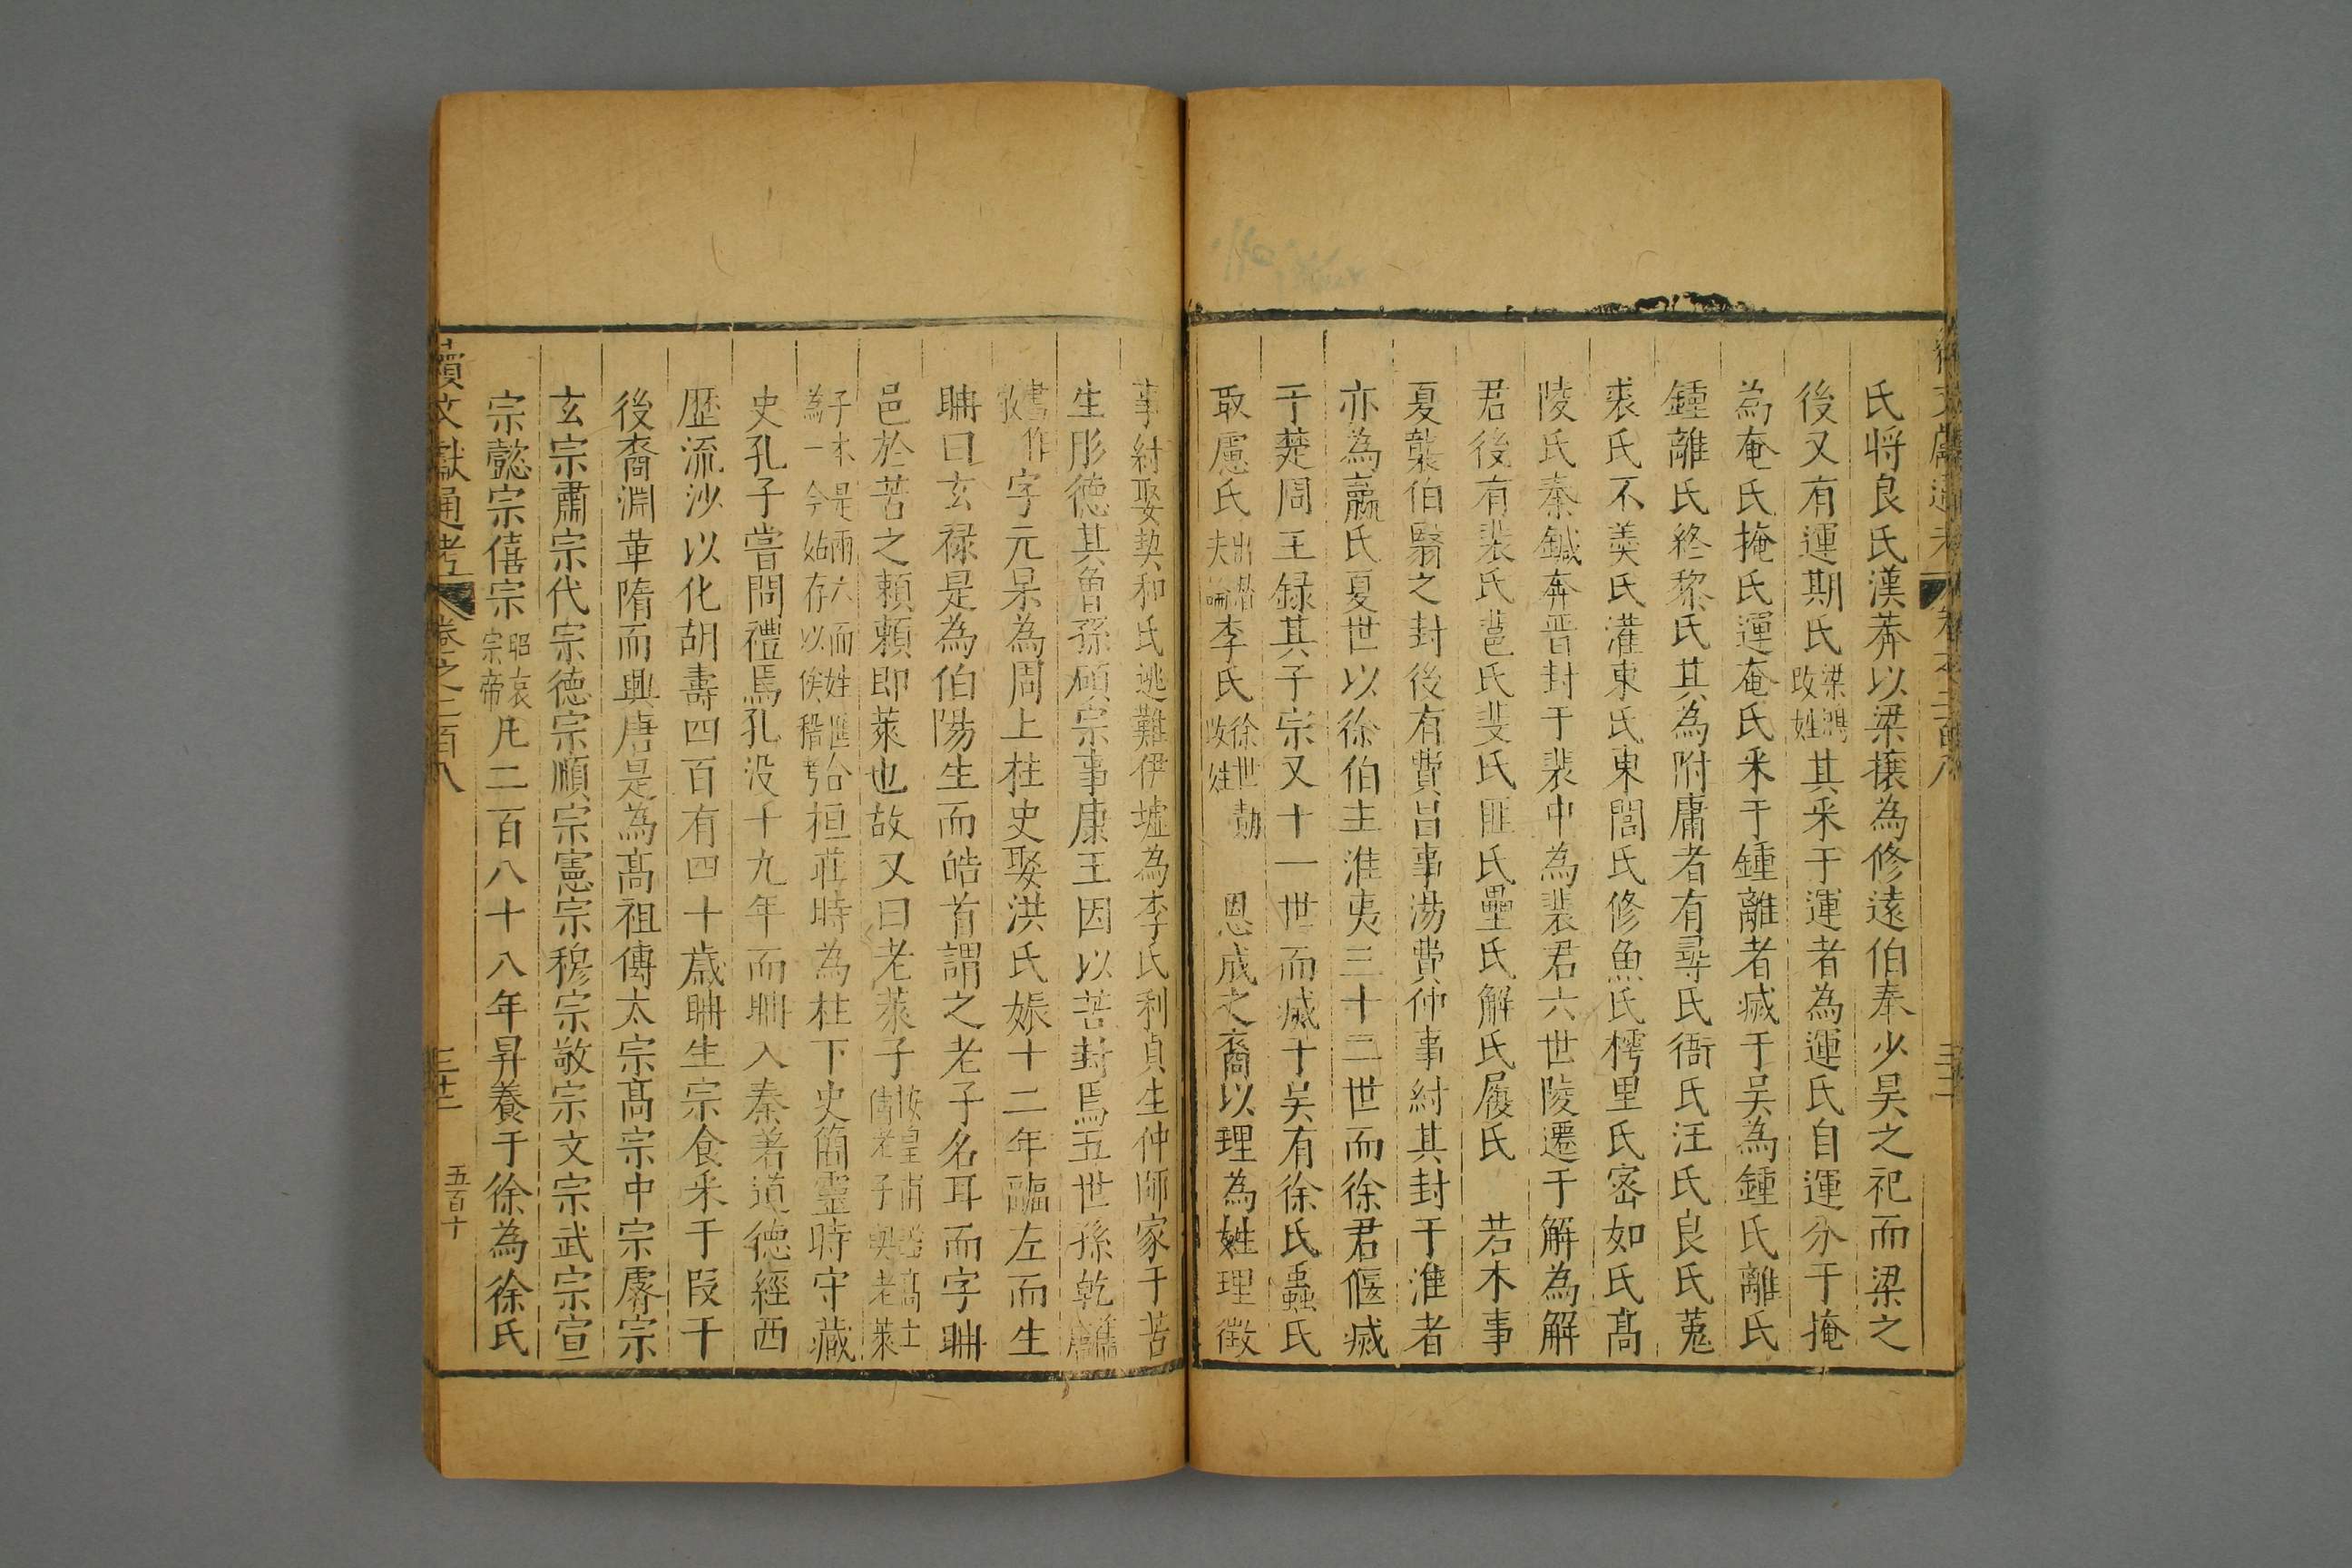 氏将良氏漢莽以梁攘為修遠伯奉少昊之祀而梁之
後又有運期氏梁鴻改姓其采于運者為運氏自運分于掩
為奄氏掩氏運奄氏采于鍾離者㓕于吴為鍾氏離氏
鍾離氏終黎氏其為附庸者有尋氏衙氏汪氏良氏菟
裘氏不羮氏灌東氏東閭氏修魚氏樗里氏宻如氏髙
陵氏秦鍼奔晋封于裴中為裴君六世陵遷于解為解
君後有裴氏䓲氏婓氏匪氏壘氏解氏履氏 若木事
夏襲伯翳之封後有費昌事湯費仲事紂其封于淮者
亦為嬴氏夏世以徐伯主淮夷三十二世而徐君偃㓕
于楚周王録其子宗又十一世而㓕于吴有徐氏䖵氏
取慮氏出潜夫論李氏徐世勣改姓 恩成之裔以理為姓理徵
事紂娶契和氏逃難伊墟為李氏利貞生仲師家于苦
生彤徳其魯孫碩宗事康王因以苦封焉五世孫乾
書作字元杲為周上柱史娶洪氏娠十二年𦜝左而生
耼曰玄禄是為伯陽生而皓首謂之老子名耳而字耼
邑於苦之頼頼即萊也故又曰老萊子按皇甫謐髙士傳老子與老萊
子本是兩人而姓為一今姑存以俟稽考桓莊時為柱下史簡靈時守藏
史孔子嘗問禮焉孔没十九年而耼入秦著道徳經西
歴流沙以化胡壽四百有四十歳耼生宗食采于叚干
後裔淵革隋而興唐是為髙祖傳太宗髙宗中宗㕡宗
玄宗肅宗代宗徳宗順宗憲宗穆宗敬宗文宗武宗宣
宗懿宗僖宗昭宗哀帝凡二百八十八年昇養于徐為徐氏
續文獻通考 卷之二百八 五百十